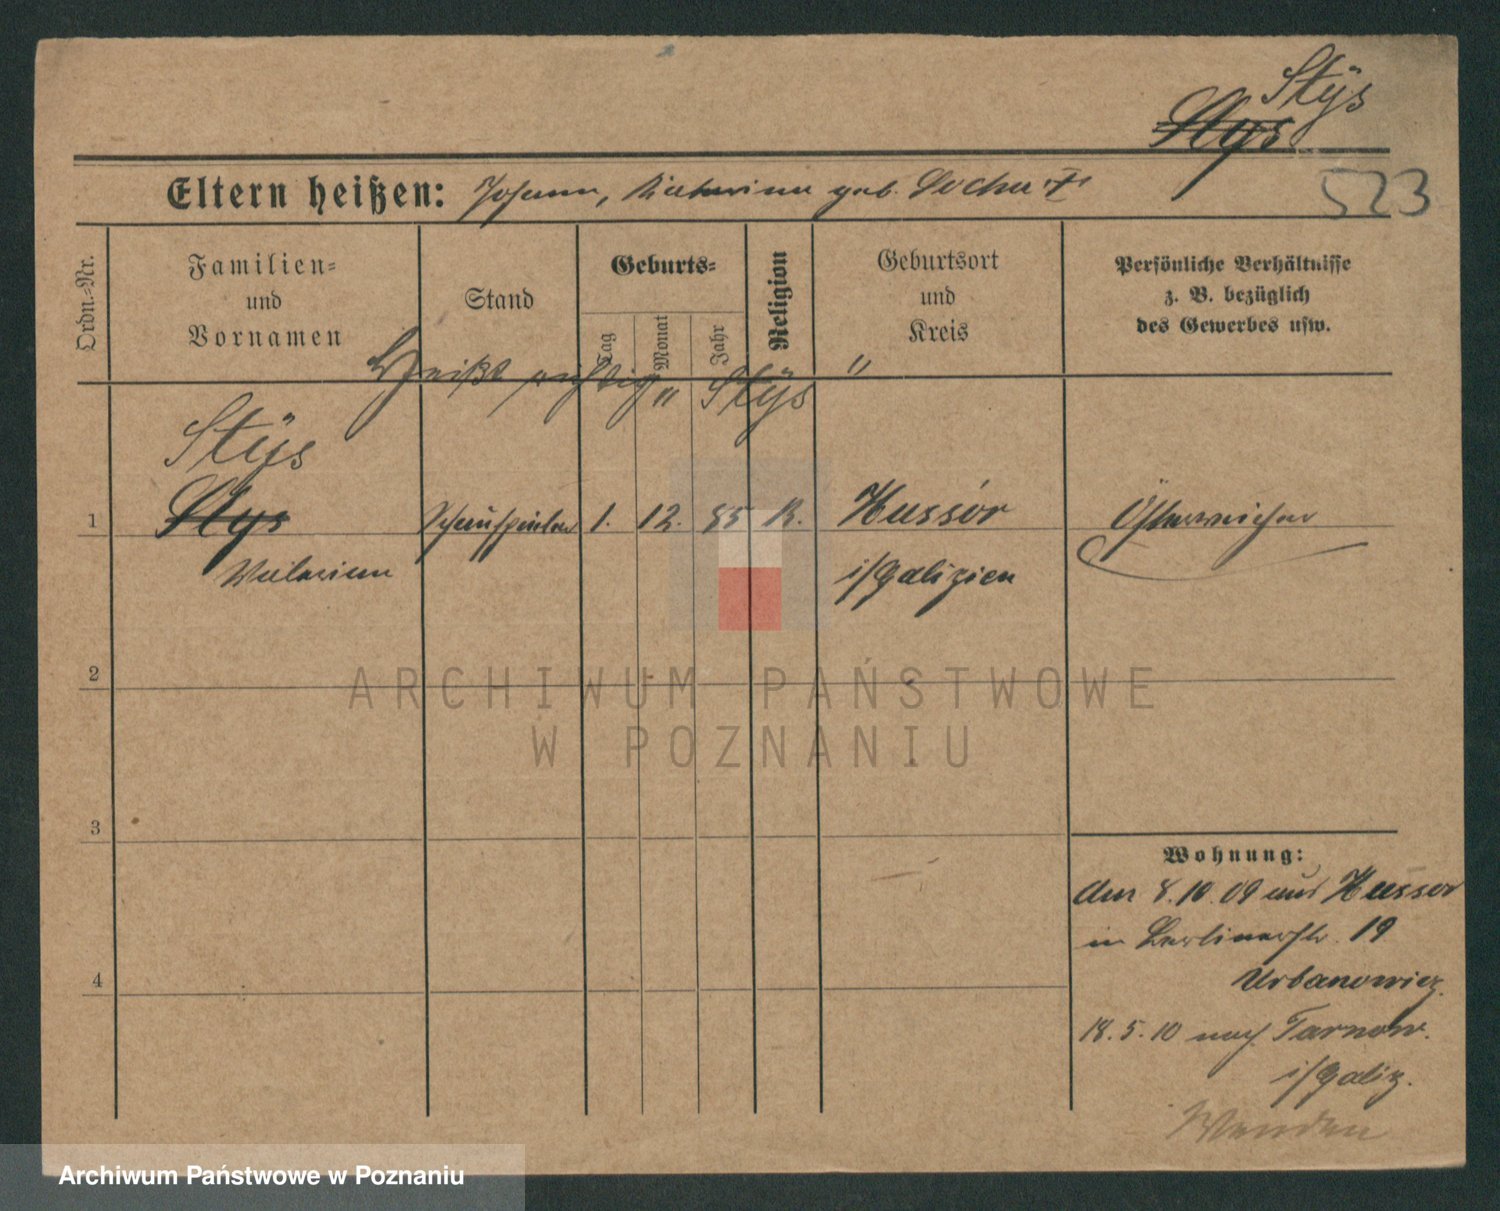 Stÿs
Stys
Eltern heißen: Johann, Katharina geb. Socha
523
Ordn.-Nr.
Familien-
und
Vornamen
Stand
Geburts-
Tag
Monat
Jahr
Religion
Geburtsort
und
Kreis
Persönliche Verhältnisse
z. B. bezüglich
des Gewerbes usw.
Heißt richtig „Stÿs"
Stÿs
1 Stys Schauspieler 1. 12. 85 K. Hussór Österreicher
Valerian i/Galizien
2
3
4
Wohnung:
den 8.10.09 aus Hussor
in Berlinerstr. 19
Urbanowicz.
18.5.10 nach Tarnow.
i/Galiz.
Wenden
ARCHIWUM PAŃSTWOWE
W POZNANIU
Archiwum Państwowe w Poznaniu